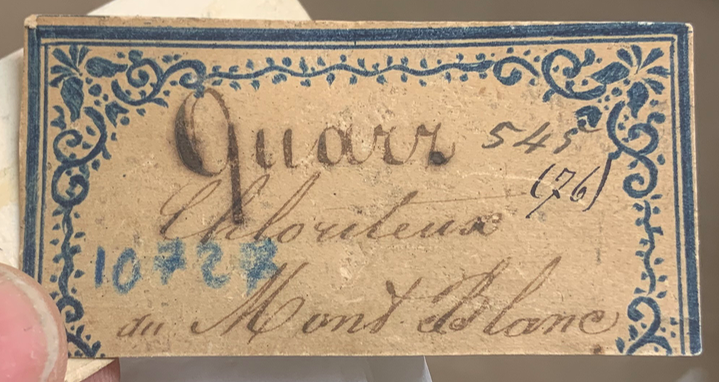 Quarz 545
(76)
Chloriteux
10727
du Mont Blanc